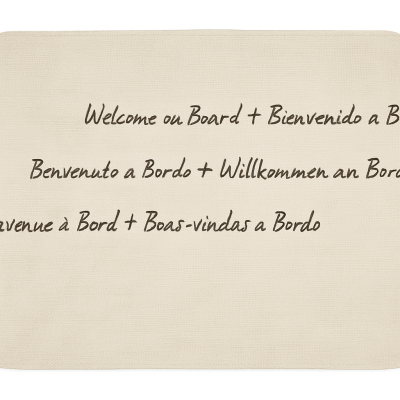 Welcome ou Board + Bienvenido a B
Benvenuto a Bordo + Willkommen an Bord
avenue à Bord + Boas-vindas a Bordo